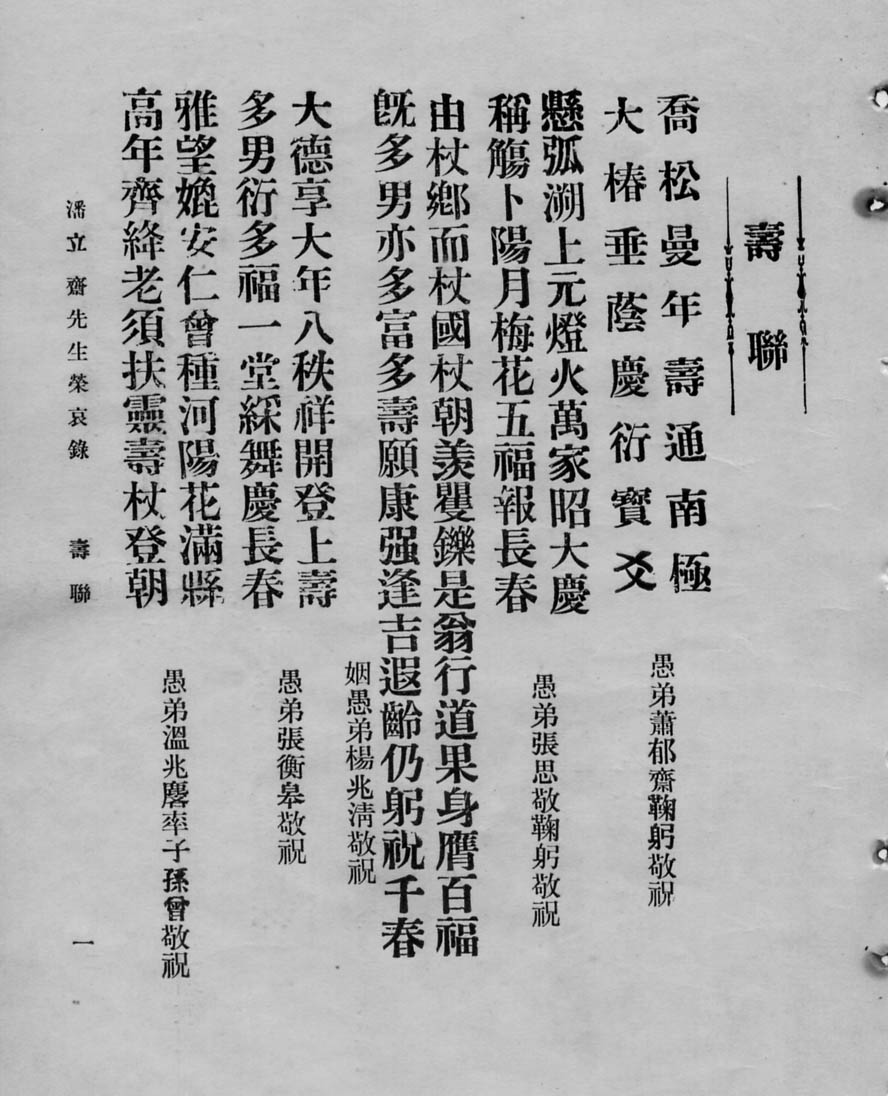 壽聯
喬松曼年壽通南極
大椿垂蔭慶衍寶爻
愚弟蕭郁齋鞠躬敬祝
懸弧溯上元燈火萬家昭大慶
稱觴卜陽月梅花五福報長春
愚弟張思敬鞠躬敬祝
由杖鄉而杖國杖朝羨矍鑠是翁行道果身膺百福
旣多男亦多富多壽願康强逢吉遐齡仍躬祝千春
姻愚弟楊兆淸敬祝
大德享大年八秩祥開登上壽
多男衍多福一堂綵舞慶長春
愚弟張衡皋敬祝
雅望媲安仁曾種河陽花滿縣
高年齊絳老須扶靈壽杖登朝
愚弟溫兆麐率子孫曾敬祝
潘立齋先生榮哀錄　壽聯　一